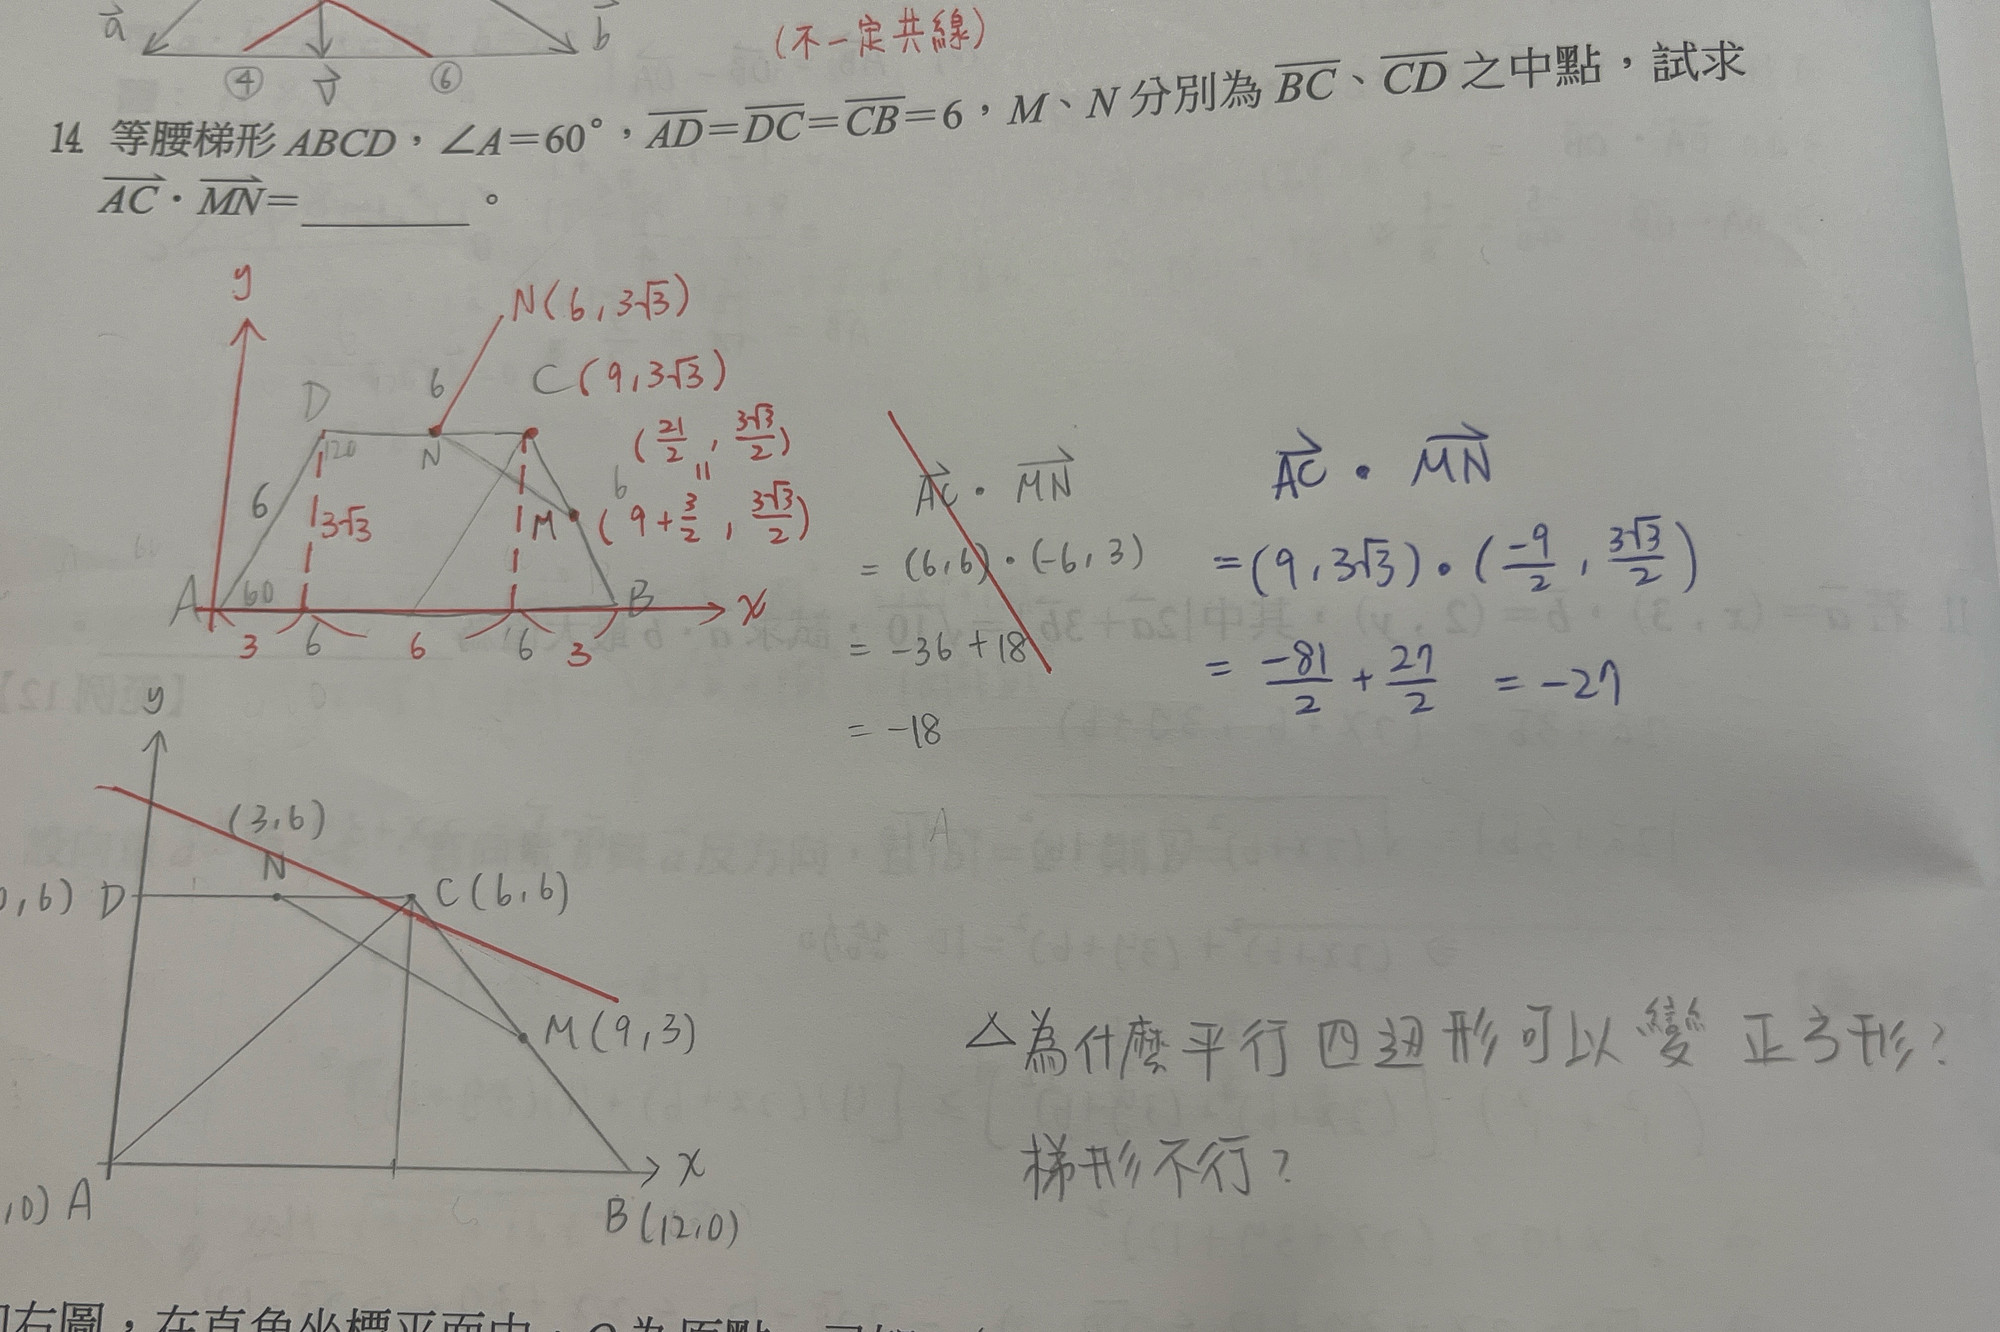 a b
④ v ⑥
(不一定共線)
14 等腰梯形 ABCD，∠A=60°，AD=DC=CB=6，M、N 分別為 BC、CD 之中點，試求
AC · MN=________。
y
N(6, 3√3)
D 6 C(9, 3√3)
120 N (21/2, 3√3/2)
=
6 3√3 6 M (9+3/2, 3√3/2)
A 60 B x
3 6 6 6 3
AC · MN
= (6,6)·(-6,3)
= -36+18
= -18
AC · MN
= (9, 3√3)·(-9/2, 3√3/2)
= -81/2 + 27/2 = -27
y
(3,6)
N
,6) D C(6,6)
M(9,3)
x
,0) A B(12,0)
A
△為什麼平行四邊形可以變正方形?
梯形不行?
右圖，在直角坐標平面中，O為原點